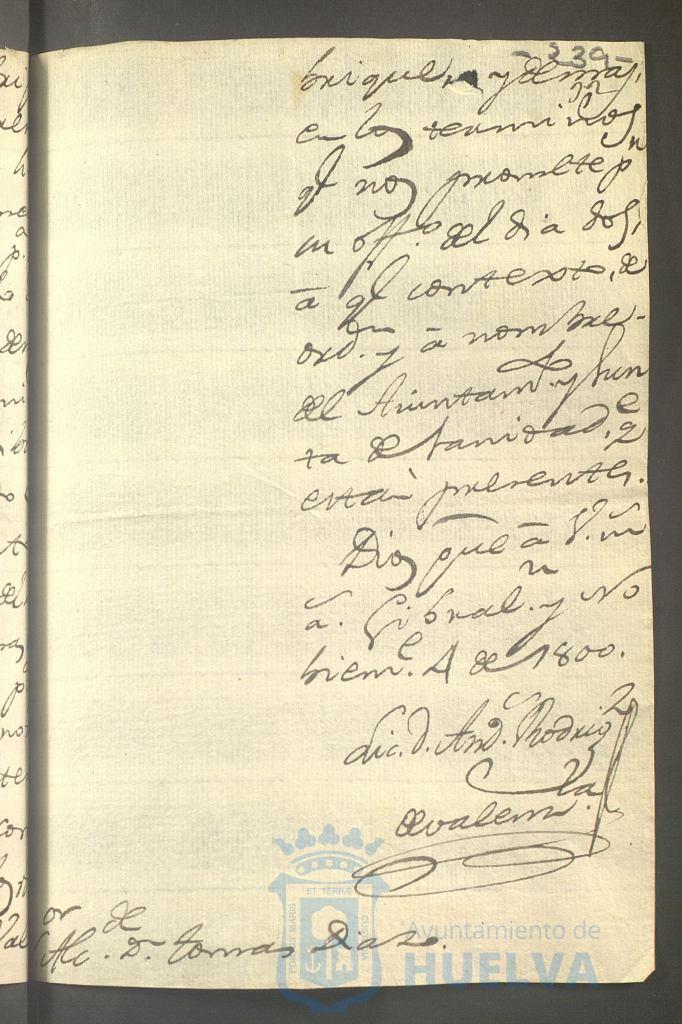 -239-
brique, y demas,
en los terminos,
q.^e nos promete p.^r
su off.^o del dia dos,
à q.^e contexto, de
ord.^n y à nombre
del Aiuntam.^to y Jun
ta de Sanidad, q.^e
están presentes.
Dios gue à V. m.^s
a.^s Gibral.^n y No
biem.^e 4 de 1800.
Lic. D. And.^s Rodrig.^z
de Valen.^la
S.^or Alc.^de D.^n Tomas Diaz.
Ayuntamiento de
HUELVA